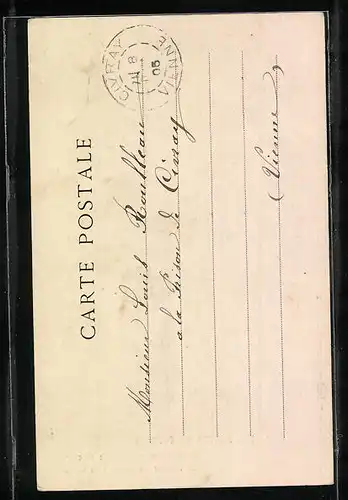 CARTE POSTALE
CIVRAY
VIENNE
8
05
Monsieur Louis Roulleau
a la Prison de Civray
(Vienne)